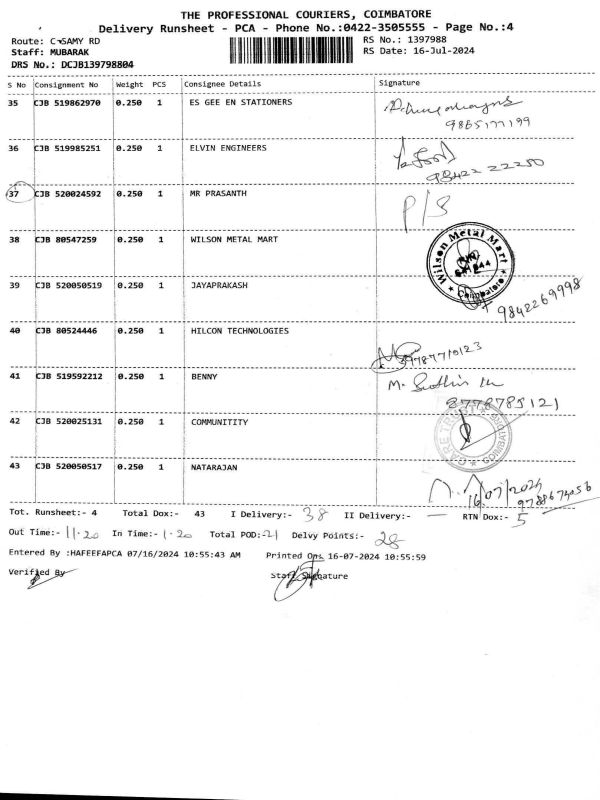 THE PROFESSIONAL COURIERS, COIMBATORE
Delivery Runsheet - PCA - Phone No.:0422-3505555 - Page No.:4
Route: C SAMY RD
RS No.: 1397988
Staff: MUBARAK
RS Date: 16-Jul-2024
DRS No.: DCJB139798804
S No Consignment No Weight PCS Consignee Details Signature
35 CJB 519862970 0.250 1 ES GEE EN STATIONERS
9865177199
36 CJB 519985251 0.250 1 ELVIN ENGINEERS
98422 22250
37 CJB 520024592 0.250 1 MR PRASANTH P/S
38 CJB 80547259 0.250 1 WILSON METAL MART
Wilson Metal Mart
39 CJB 520050519 0.250 1 JAYAPRAKASH
9842269998
40 CJB 80524446 0.250 1 HILCON TECHNOLOGIES
9787710123
41 CJB 519592212 0.250 1 BENNY
8778785121
42 CJB 520025131 0.250 1 COMMUNITITY
CARE TRUST
43 CJB 520050517 0.250 1 NATARAJAN
16/07/2024
9788674056
Tot. Runsheet:- 4 Total Dox:- 43 I Delivery:- 38 II Delivery:- — RTN Dox:- 5
Out Time:- 11.20 In Time:- 1.20 Total POD:- 21 Delvy Points:- 28
Entered By :HAFEEFAPCA 07/16/2024 10:55:43 AM Printed On: 16-07-2024 10:55:59
Verified By
Staff Signature